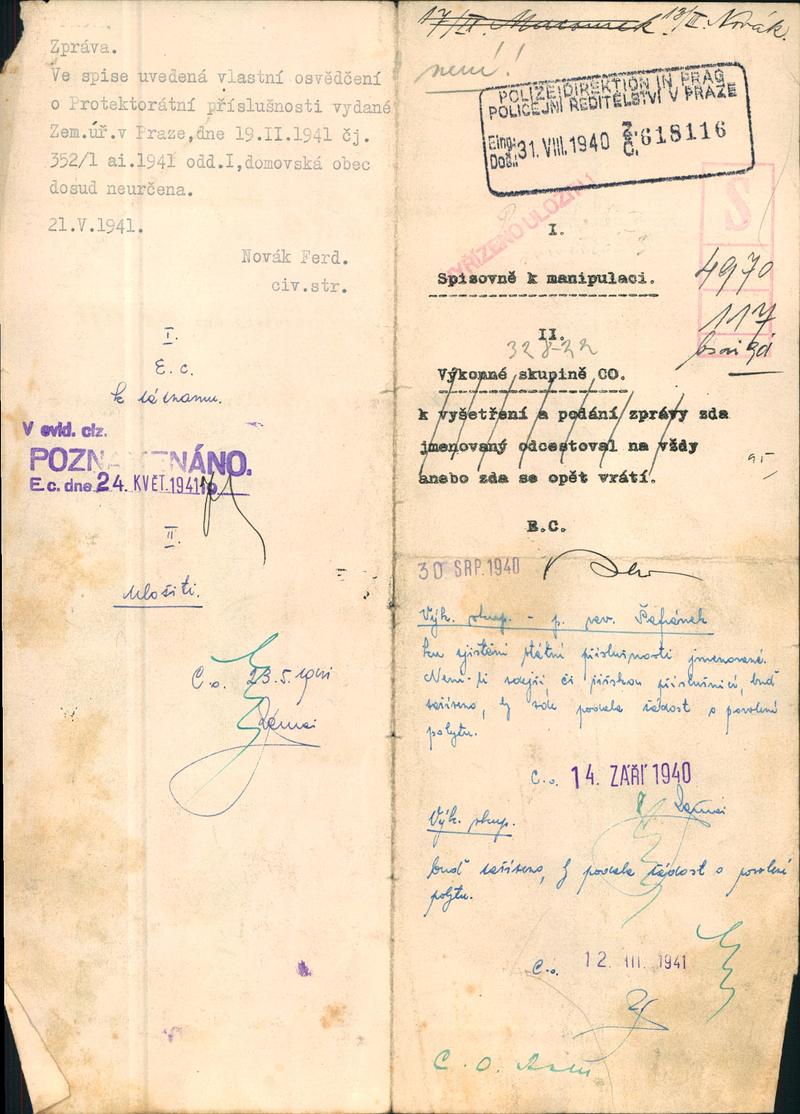 Zpráva.
Ve spise uvedená vlastní osvědčení
o Protektorátní příslušnosti vydané
Zem.úř.v Praze,dne 19.II.1941 čj.
352/1 ai.1941 odd.I,domovská obec
dosud neurčena.
21.V.1941.
Novák Ferd.
civ.str.
I.
E. c.
k záznamu.
V evid. ciz.
POZNAMENÁNO.
E.c. dne 24. KVĚT. 1941
II.
Uložiti.
C. o. 23.5.1941
17/II 13/II. Novák.
není!
POLIZEIDIREKTION IN PRAG
POLICEJNÍ ŘEDITELSTVÍ V PRAZE
Eing.: Došl.: 31. VIII. 1940 Z. Č. 618116
VYŘÍZENO ULOŽITI
S
I.
4970
Spisovně k manipulaci.
117
II.
328-22
Výkonné skupině CO.
k vyšetření a podání zprávy zda
jmenovaný odcestoval na vždy
anebo zda se opět vrátí.
E.C.
30 SRP. 1940
Výk. skup. - p. rev. Šafránek
ku zjištění státní příslušnosti jmenované.
Není-li zdejší či říšskou příslušnicí, buď
zařízeno, by zde podala žádost o povolení
pobytu.
C. o. 14. ZÁŘÍ 1940
Výk. skup.
buď zařízeno, by podala žádost o povolení
pobytu.
C. o. 12. III. 1941
C. O.